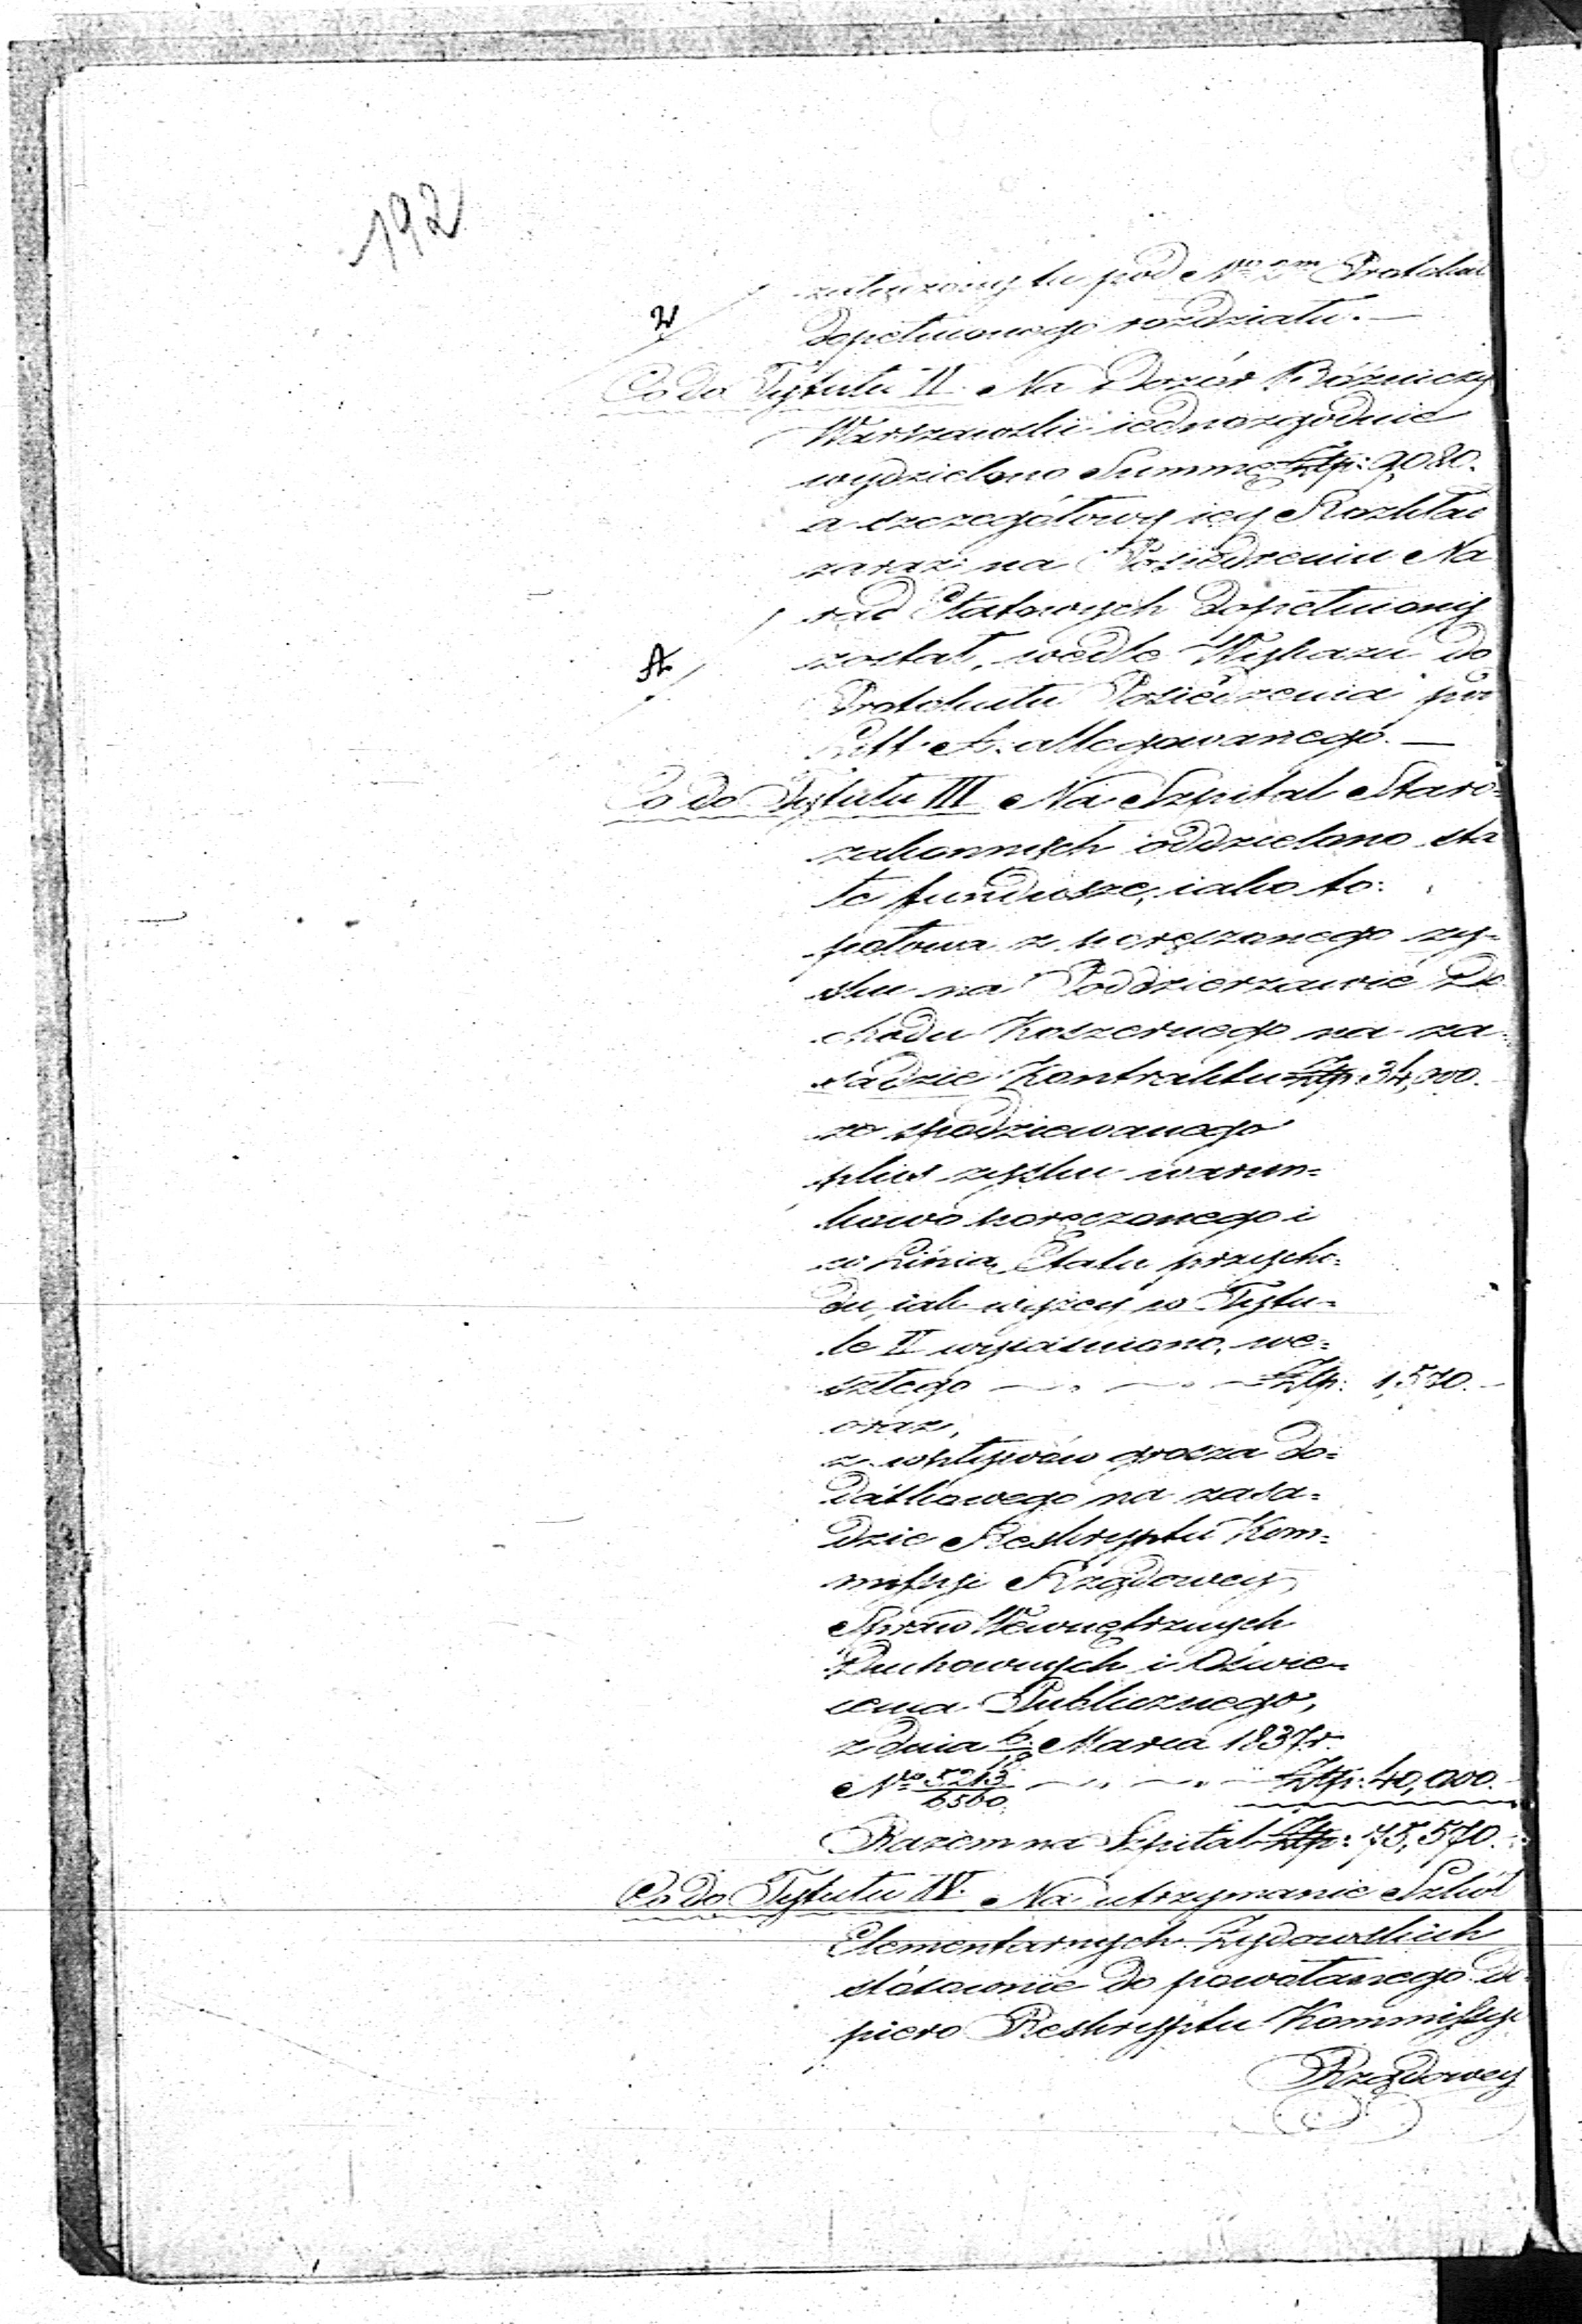 192
pod Nro 2m Protokułu
2
dopełnionego rozdziału. —
Co do Tytułu II. Na Dozór Bóżniczy
Warszawski iednozgodnie
wydzielono Summę Złp: 9,080.
a szczegółowy iey Rozkład
zaraz na Posiedzeniu Na
rad Etatowych dopełniony
A
został, wedle Wykazu do
Protokułu Posiedzenia pod
Litt. A. allegowanego. —
Co do Tytułu III Na Szpital Staro=
zakonnych oddzielono sta
łe fundusze, iako to:
połowa z poręczonego zy=
sku na Poddzierzawie Do
chodu Koszernego na za=
sadzie Kontraktu Złp: 34,000.
ze spodziewanego
plus zysku warun=
kowo poręczonego i
w Linią Etatu przycho=
du, iak wyżey w Tytu=
le II wyiaśniono, we=
szłego — „ — „ — Złp: 1,570. —
oraz,
z wpływów grosza do=
datkowego na zasa=
dzie Reskryptu Kom=
missyi Rządowey
Spraw Wewnętrznych
Duchownych i Oświe=
cenia Publicznego,
z dnia 6/18 Marca 1837 r.
Nro 5213/6560. — „ — „ — Złp: 40,000. —
Razem na Szpital Złp: 75,570. —
Co do Tytułu IV. Na utrzymanie Szkół
Elementarnych Żydowskich
stósownie do powołanego do
piero Reskryptu Kommissyi
Rządowey